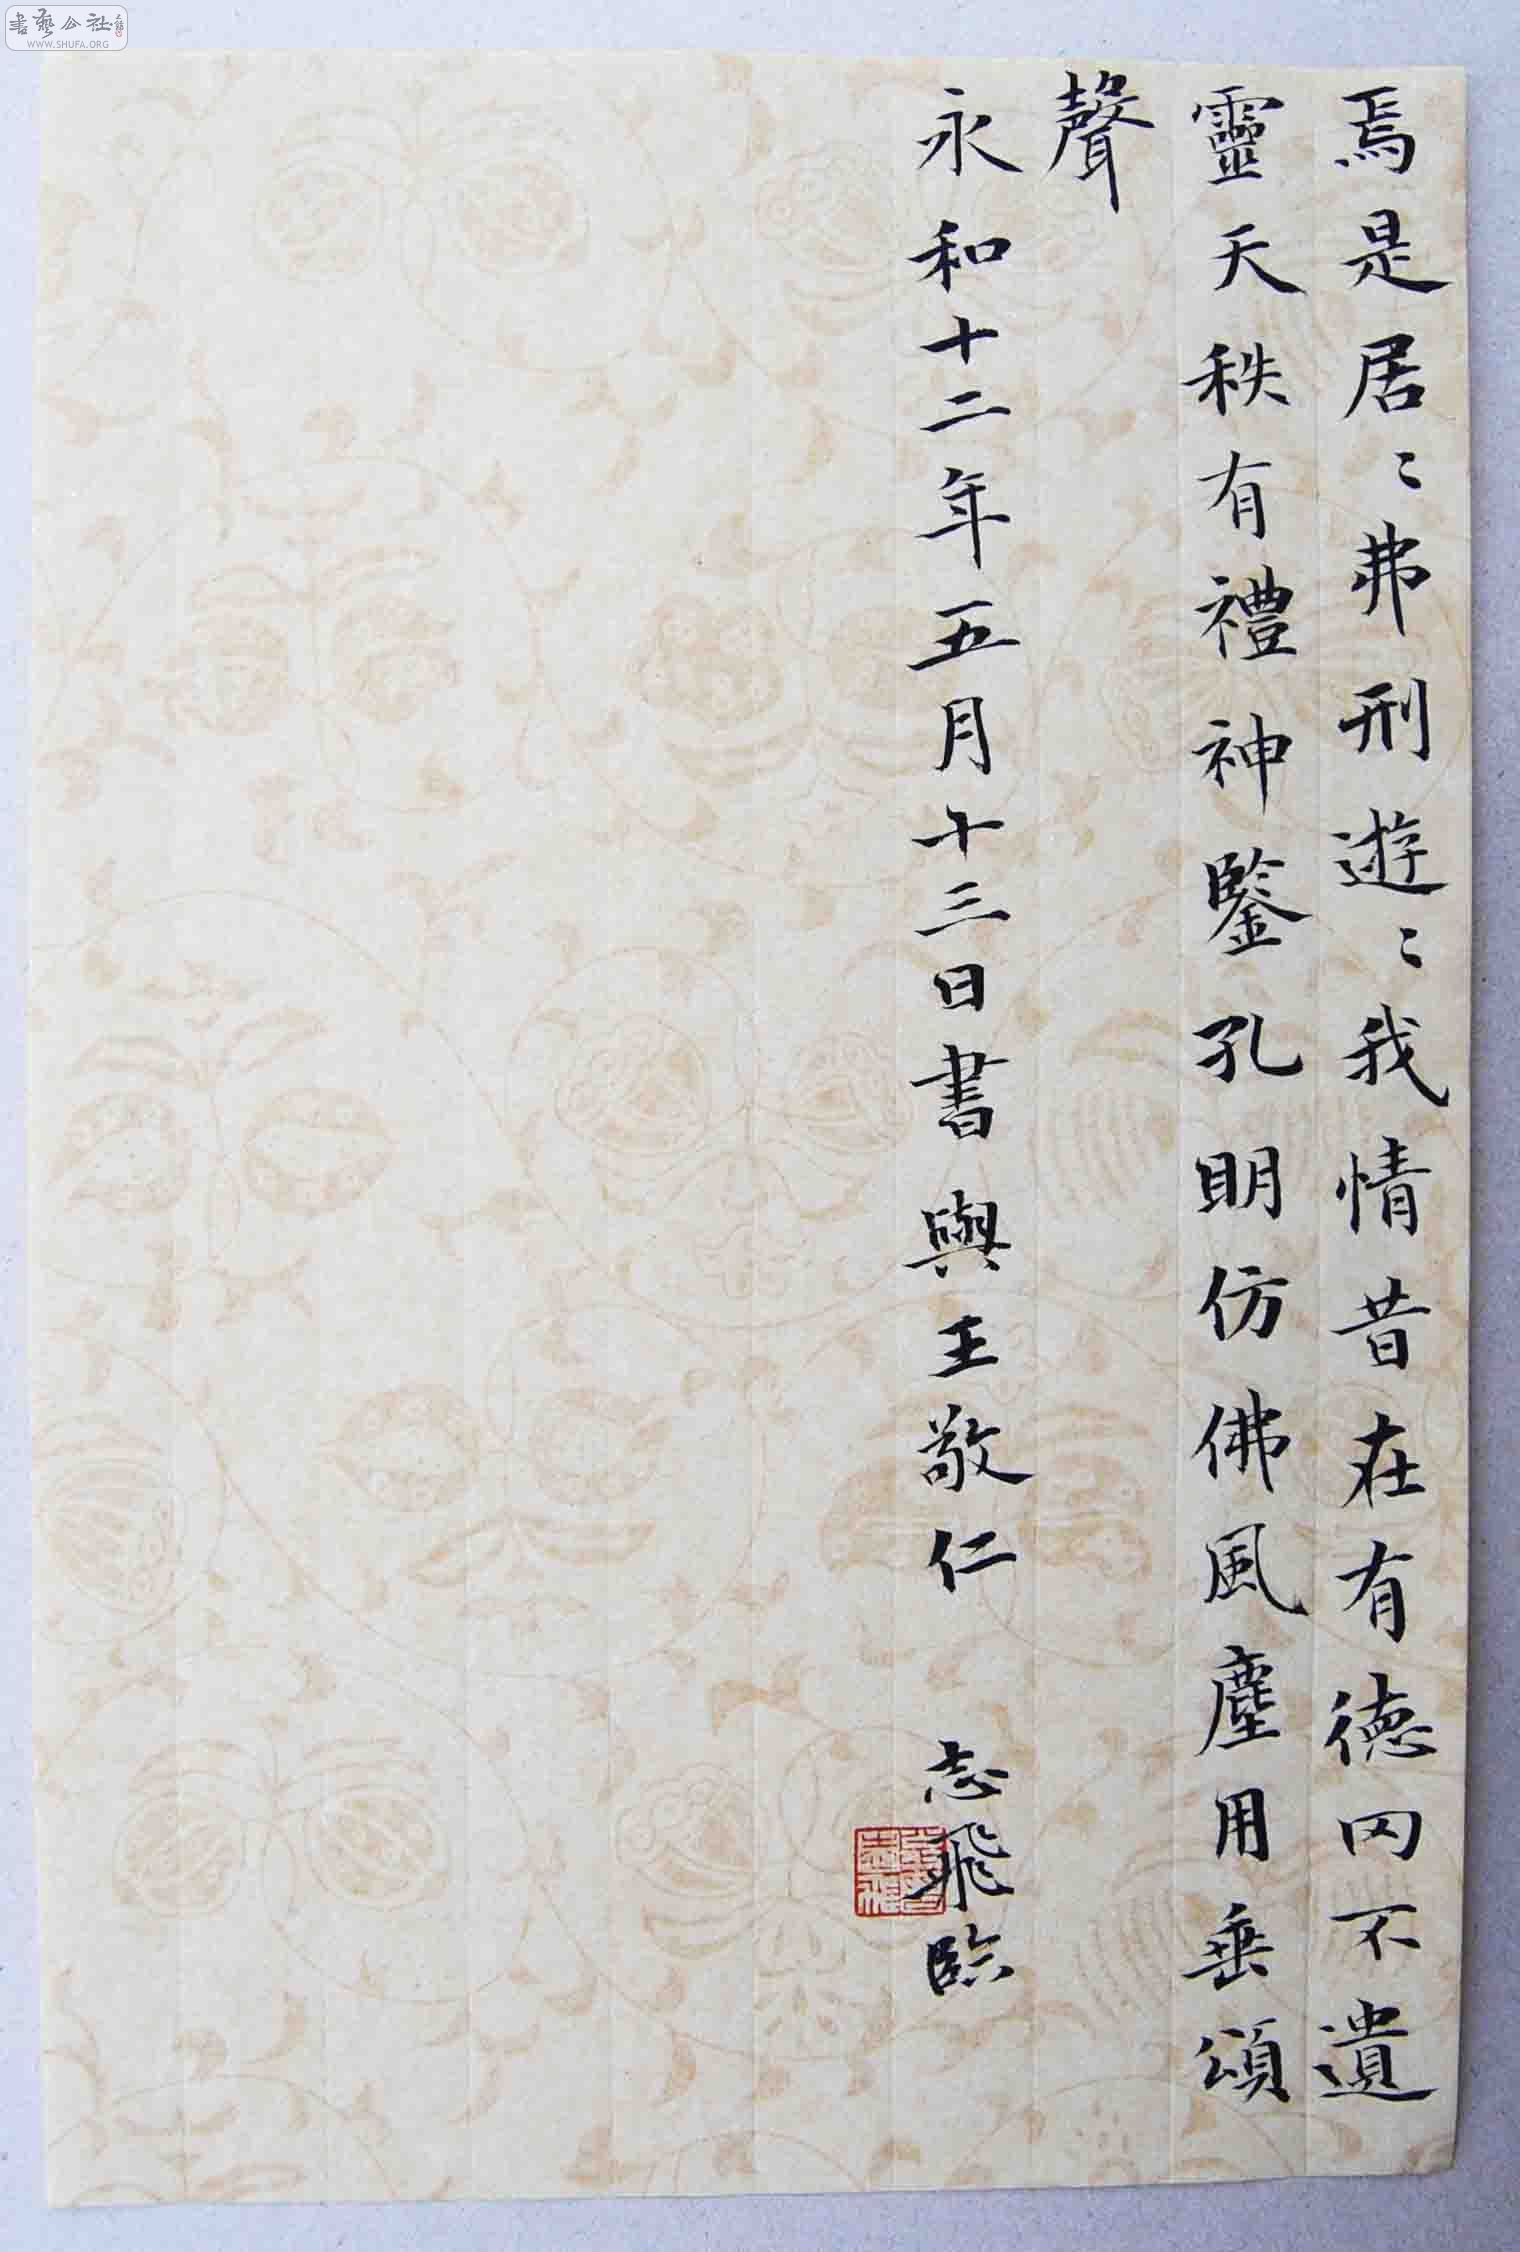 焉是居〻弗刑遊〻我情昔在有德罔不遺
靈天秩有禮神鑒孔明仿佛風塵用垂頌
聲
永和十二年五月十三日書與王敬仁 志飛臨
書藝公社
WWW.SHUFA.ORG